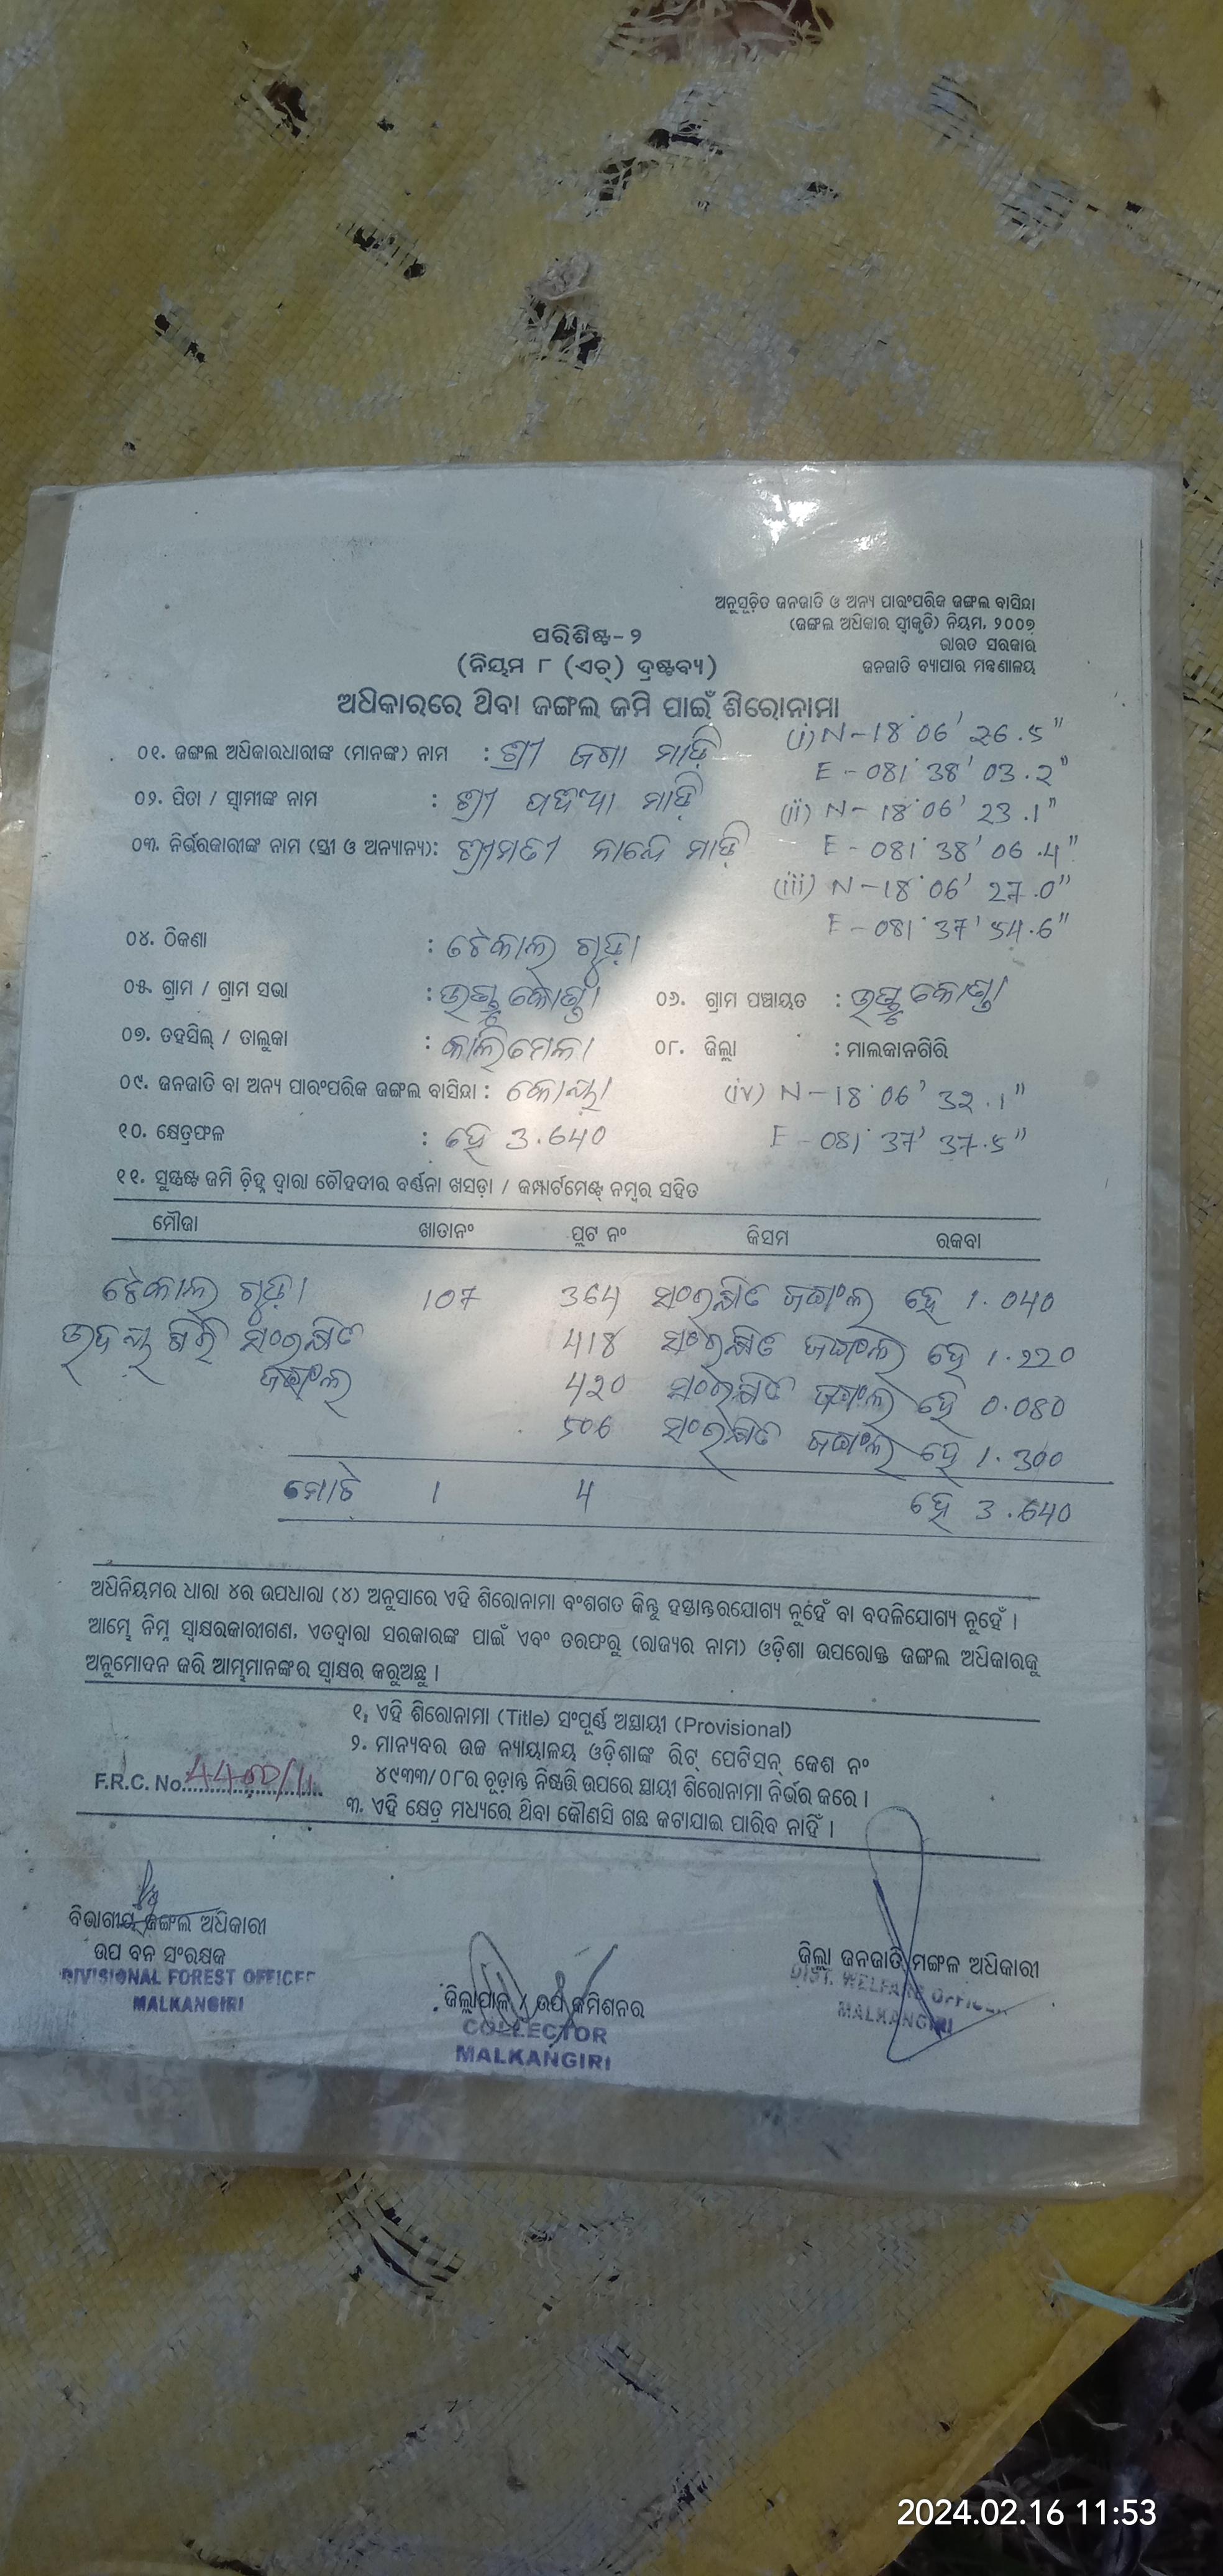 ଅନୁସୂଚିତ ଜନଜାତି ଓ ଅନ୍ୟ ପାରଂପରିକ ଜଙ୍ଗଲ ବାସିନ୍ଦା
(ଜଙ୍ଗଲ ଅଧିକାର ସ୍ୱୀକୃତି) ନିୟମ, ୨୦୦୭
ଭାରତ ସରକାର
ଜନଜାତି ବ୍ୟାପାର ମନ୍ତ୍ରଣାଳୟ
ପରିଶିଷ୍ଟ-୨
(ନିୟମ ୮ (ଏଚ୍) ଦ୍ରଷ୍ଟବ୍ୟ)
ଅଧିକାରରେ ଥିବା ଜଙ୍ଗଲ ଜମି ପାଇଁ ଶିରୋନାମା
୦୧. ଜଙ୍ଗଲ ଅଧିକାରଧାରୀଙ୍କ (ମାନଙ୍କ) ନାମ : ଶ୍ରୀ ଜଗା ମାଡ଼ି
(i) N-18°06' 26.5"
E-081°38' 03.2"
୦୨. ପିତା / ସ୍ୱାମୀଙ୍କ ନାମ : ଶ୍ରୀ ମାଡ଼ି
(ii) N-18°06' 23.1"
୦୩. ନିର୍ଭରକାରୀଙ୍କ ନାମ (ସ୍ତ୍ରୀ ଓ ଅନ୍ୟାନ୍ୟ): ଶ୍ରୀମତୀ ମାଡ଼ି
E-081°38' 06.4"
(iii) N-18°06' 27.0"
E-081°37' 54.6"
୦୪. ଠିକଣା : ଟେକାଲ ଗୁଡ଼ା
୦୫. ଗ୍ରାମ / ଗ୍ରାମ ସଭା : ୦୬. ଗ୍ରାମ ପଞ୍ଚାୟତ :
୦୭. ତହସିଲ୍ / ତାଲୁକା : କାଲିମେଳା ୦୮. ଜିଲ୍ଲା : ମାଲକାନଗିରି
୦୯. ଜନଜାତି ବା ଅନ୍ୟ ପାରଂପରିକ ଜଙ୍ଗଲ ବାସିନ୍ଦା : କୋୟା (iv) N-18°06' 32.1"
୧୦. କ୍ଷେତ୍ରଫଳ : ହେ 3.640 E-081°37' 37.5"
୧୧. ସୁସ୍ପଷ୍ଟ ଜମି ଚିହ୍ନ ଦ୍ୱାରା ଚୌହଦୀର ବର୍ଣ୍ଣନା ଖସଡ଼ା / କମ୍ପାର୍ଟମେଣ୍ଟ୍ ନମ୍ବର ସହିତ
ମୌଜା ଖାତାନଂ ପ୍ଲଟ ନଂ କିସମ ରକବା
ଟେକାଲ ଗୁଡ଼ା 107 364 ସଂରକ୍ଷିତ ଜଙ୍ଗଲ ହେ 1.040
ଉଦୟ ଗିରି ସଂରକ୍ଷିତ 418 ସଂରକ୍ଷିତ ଜଙ୍ଗଲ ହେ 1.220
ଜଙ୍ଗଲ 420 ସଂରକ୍ଷିତ ଜଙ୍ଗଲ ହେ 0.080
506 ସଂରକ୍ଷିତ ଜଙ୍ଗଲ ହେ 1.300
ମୋଟ 1 4 ହେ 3.640
ଅଧିନିୟମର ଧାରା ୪ର ଉପଧାରା (୪) ଅନୁସାରେ ଏହି ଶିରୋନାମା ବଂଶଗତ କିନ୍ତୁ ହସ୍ତାନ୍ତରଯୋଗ୍ୟ ନୁହେଁ ବା ବଦଳିଯୋଗ୍ୟ ନୁହେଁ ।
ଆମ୍ଭେ ନିମ୍ନ ସ୍ୱାକ୍ଷରକାରୀଗଣ, ଏତଦ୍ୱାରା ସରକାରଙ୍କ ପାଇଁ ଏବଂ ତରଫରୁ (ରାଜ୍ୟର ନାମ) ଓଡ଼ିଶା ଉପରୋକ୍ତ ଜଙ୍ଗଲ ଅଧିକାରକୁ
ଅନୁମୋଦନ କରି ଆମ୍ଭମାନଙ୍କର ସ୍ୱାକ୍ଷର କରୁଅଛୁ ।
୧. ଏହି ଶିରୋନାମା (Title) ସଂପୂର୍ଣ୍ଣ ଅସ୍ଥାୟୀ (Provisional)
୨. ମାନ୍ୟବର ଉଚ୍ଚ ନ୍ୟାୟାଳୟ ଓଡ଼ିଶାଙ୍କ ରିଟ୍ ପେଟିସନ୍ କେଶ ନଂ
୪୯୩୩/୦୮ର ଚୂଡ଼ାନ୍ତ ନିଷ୍ପତ୍ତି ଉପରେ ସ୍ଥାୟୀ ଶିରୋନାମା ନିର୍ଭର କରେ ।
F.R.C. No.
୩. ଏହି କ୍ଷେତ୍ର ମଧ୍ୟରେ ଥିବା କୌଣସି ଗଛ କଟାଯାଇ ପାରିବ ନାହିଁ ।
ବିଭାଗୀୟ ଜଙ୍ଗଲ ଅଧିକାରୀ
ଉପ ବନ ସଂରକ୍ଷକ
DIVISIONAL FOREST OFFICER
MALKANGIRI
ଜିଲ୍ଲାପାଳ / ଉପ କମିଶନର
COLLECTOR
MALKANGIRI
ଜିଲ୍ଲା ଜନଜାତି ମଙ୍ଗଳ ଅଧିକାରୀ
DIST. WELFARE OFFICER
MALKANGIRI
2024.02.16 11:53